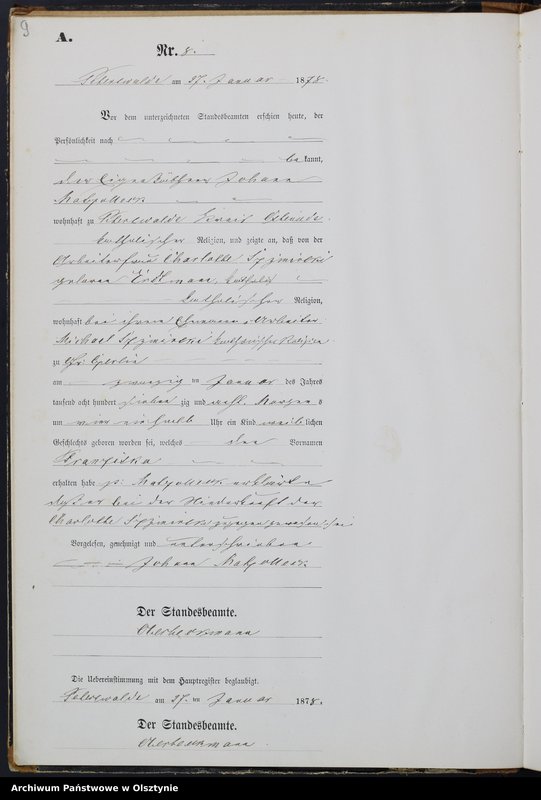 9
A.
Nr. 8.
am 27. Januar 1878.
Vor dem unterzeichneten Standesbeamten erschien heute, der
Persönlichkeit nach
be kannt,
der Eigenkäthner Johann
wohnhaft zu Kreis Osterode
katholischer Religion, und zeigte an, daß von der
Arbeiterfrau Charlotte
geborene Erdtmann, katholisch
katholischer Religion,
wohnhaft bei ihrem Ehemann, Arbeiter
Michael katholischer Religion
zu Gr. Gherlin
am zwanzig ten Januar des Jahres
tausend acht hundert sieben zig und acht Morgens
um vier einhalb Uhr ein Kind weib lichen
Geschlechts geboren worden sei, welches den Vornamen
Franziska
erhalten habe p. erklärte
daß er bei der Niederkunft der
Charlotte zugegen gewesen sei
Vorgelesen, genehmigt und unterschrieben
Johann
Der Standesbeamte.
Oberbeckmann
Die Uebereinstimmung mit dem Hauptregister beglaubigt.
am 27. ten Januar 1878.
Der Standesbeamte.
Oberbeckmann.
Archiwum Państwowe w Olsztynie